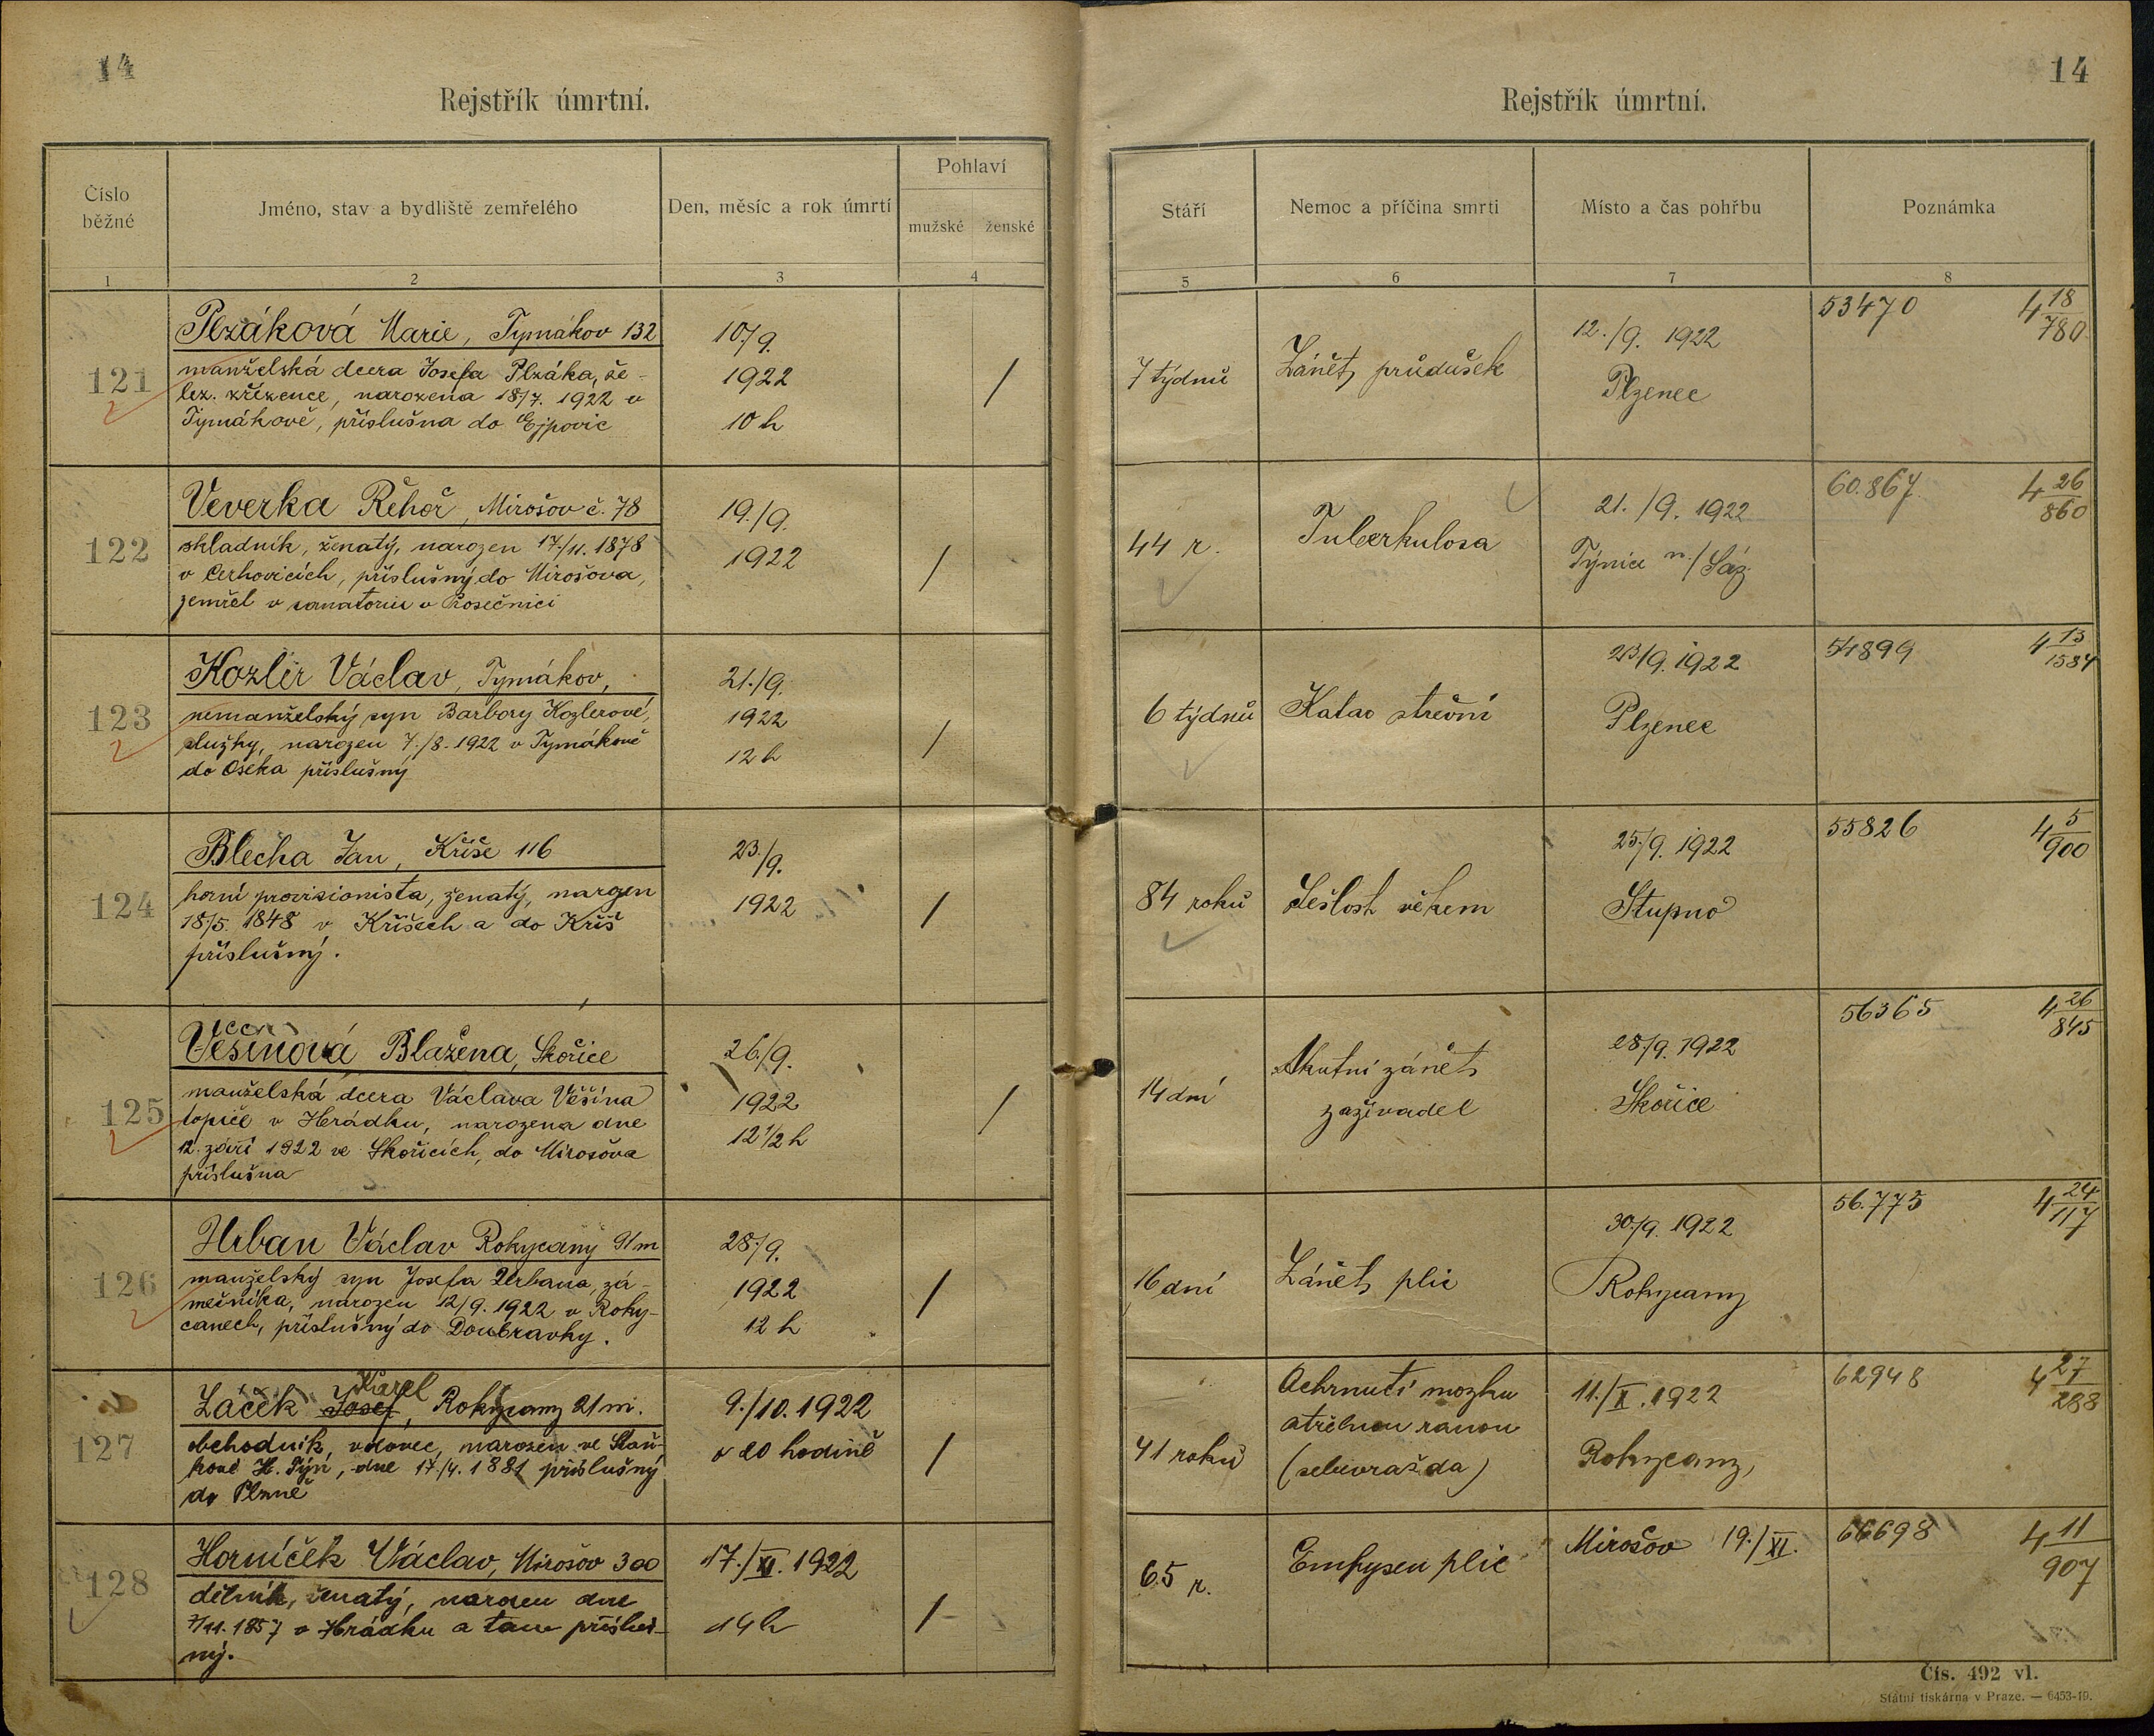 14
Rejstřík úmrtní.
Číslo běžné
Jméno, stav a bydliště zemřelého
Den, měsíc a rok úmrtí
Pohlaví
mužské
ženské
1
2
3
4
121
Plzáková Marie, Tymákov 132
manželská dcera Josefa Plzáka, že-
lez. zřízence, narozena 18/7. 1922 v
Tymákově, příslušna do Ejpovic
10./9.
1922
10 h
/
122
Veverka Řehoř, Mirošov č. 78
skladník, ženatý, narozen 17./11. 1878
v Cerhovicích, příslušný do Mirošova,
zemřel v sanatoriu v Prosečnici
19./9.
1922
/
123
Kozlir Václav, Tymákov,
nemanželský syn Barbory Kozlerové,
služky, narozen 7./8. 1922 v Tymákově
do Oseka příslušný
21./9.
1922
12 h
/
124
Blecha Jan, Kříše 116
horní provisionista, ženatý, narozen
18/5. 1848 v Kříších a do Kříš
příslušný.
23./9.
1922
/
125
Věšínová Blažena, Skořice
manželská dcera Václava Věšína
topiče v Hrádku, narozena dne
12. září 1922 ve Skořicích, do Mirošova
příslušna
26./9.
1922
12 1/2 h
/
126
Urban Václav Rokycany 91 m
manželský syn Josefa Urbana, zá-
mečníka, narozen 12/9. 1922 v Roky-
canech, příslušný do Doubravky.
28./9.
1922
12 h
/
127
Karel
Žáček Josef, Rokycany 21 m.
obchodník, vdovec, narozen ve Staň-
kově H. Týn, dne 17./4. 1881 příslušný
do Plzně
9./10. 1922
v 20 hodině
/
128
Horníček Václav, Mirošov 300
dělník, ženatý, narozen dne
7/11. 1857 v Hrádku a tam přísluš-
ný.
17./XI. 1922
14 h
/
14
Rejstřík úmrtní.
Stáří
Nemoc a příčina smrti
Místo a čas pohřbu
Poznámka
5
6
7
8
7 týdnů
Zánět průdušek
12./9. 1922
Plzenec
53470
4 18/780
44 r.
Tuberkulosa
21./9. 1922
Týnice n./Sáz.
60.867
4 26/860
6 týdnů
Katar střevní
23/9. 1922
Plzenec
54899
4 13/1584
84 roků
Sešlost věkem
25./9. 1922
Stupno
55826
4 5/900
14 dní
Akutní zánět
zažívadel
28./9. 1922
Skořice
56365
4 26/845
16 dní
Zánět plic
30./9. 1922
Rokycany
56.773
4 24/117
41 roků
Ochrnutí mozku
střelnou ranou
(sebevražda)
11./X. 1922
Rokycany
62948
4 27/288
65 r.
Emfysem plic
Mirošov 19./XI.
66698
4 11/907
Čís. 492 vl.
Státní tiskárna v Praze. — 6453-19.